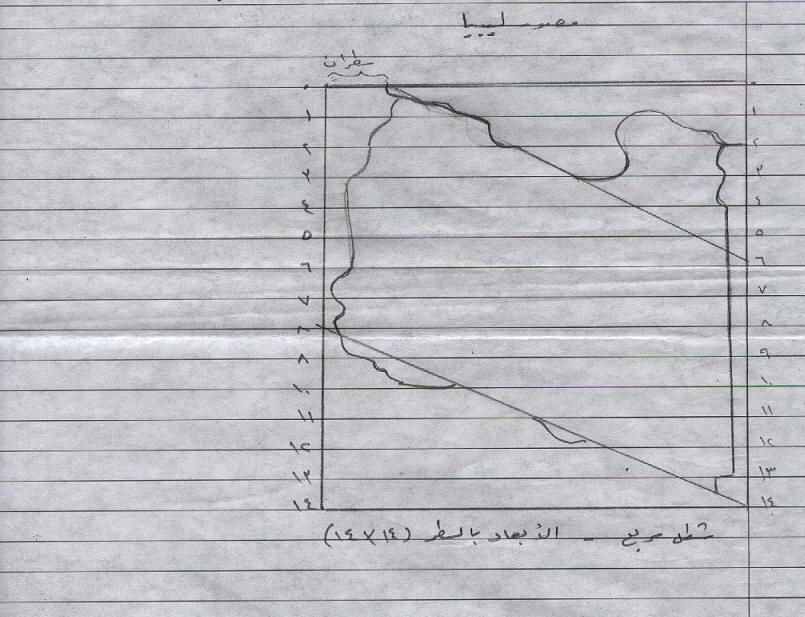 مصور ليبيا
سطران
٠ ٠
١ ١
٢ ٢
٣ ٣
٤ ٤
٥ ٥
٦ ٦
٧ ٧
٨ ٨
٩ ٨
١٠ ١٠
١١ ١١
١٢ ١٢
١٣ ١٣
١٤ ١٤
شكل مربع - الأبعاد بالسطر (١٤×١٤)